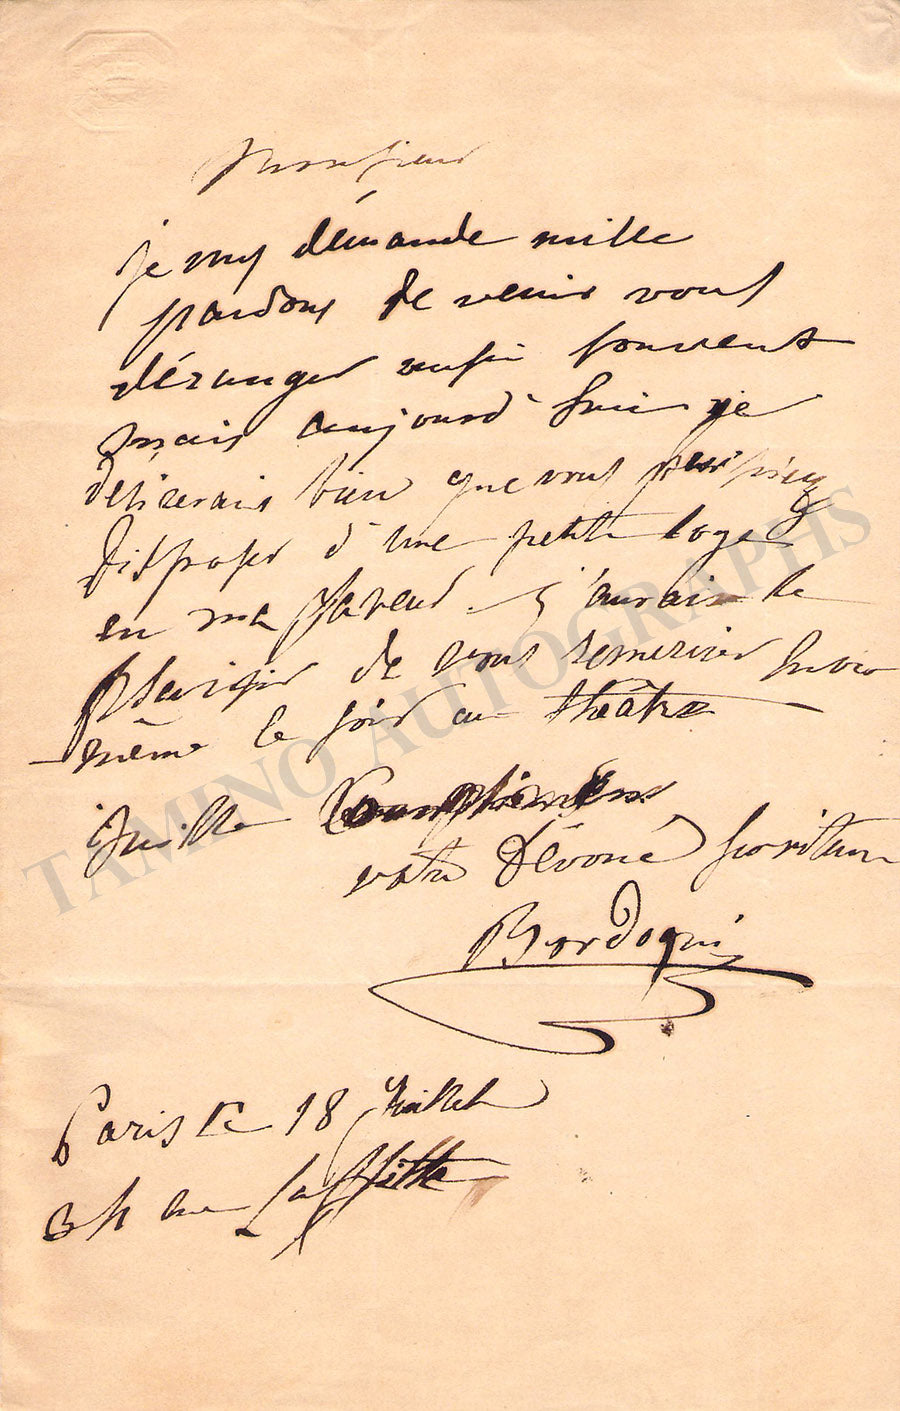 Monsieur
je vous demande mille
pardons de venir vous
déranger aussi souvent
mais aujourd'hui je
désirerais bien que vous puissiez
disposer d'une petite loge
en ma faveur. j'aurais le
plaisir de vous remercier
même le soir au théâtre
mille Compliments
votre Dévoué Serviteur
Bordogni
Paris le 18 Juillet
rue Laffitte
TAMINO AUTOGRAPHS